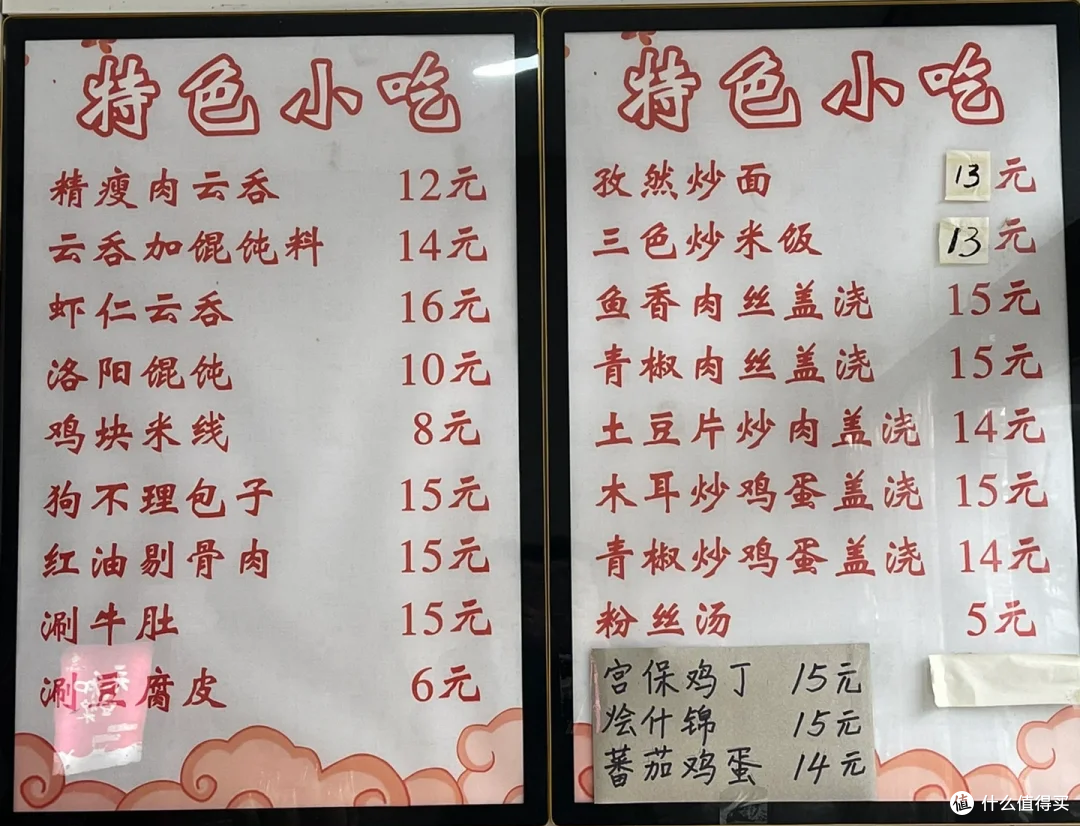 特色小吃
精瘦肉云吞 12元
云吞加馄饨料 14元
虾仁云吞 16元
洛阳馄饨 10元
鸡块米线 8元
狗不理包子 15元
红油剔骨肉 15元
涮牛肚 15元
涮豆腐皮 6元
特色小吃
孜然炒面 13元
三色炒米饭 13元
鱼香肉丝盖浇 15元
青椒肉丝盖浇 15元
土豆片炒肉盖浇 14元
木耳炒鸡蛋盖浇 15元
青椒炒鸡蛋盖浇 14元
粉丝汤 5元
宫保鸡丁 15元
烩什锦 15元
蕃茄鸡蛋 14元
值 什么值得买